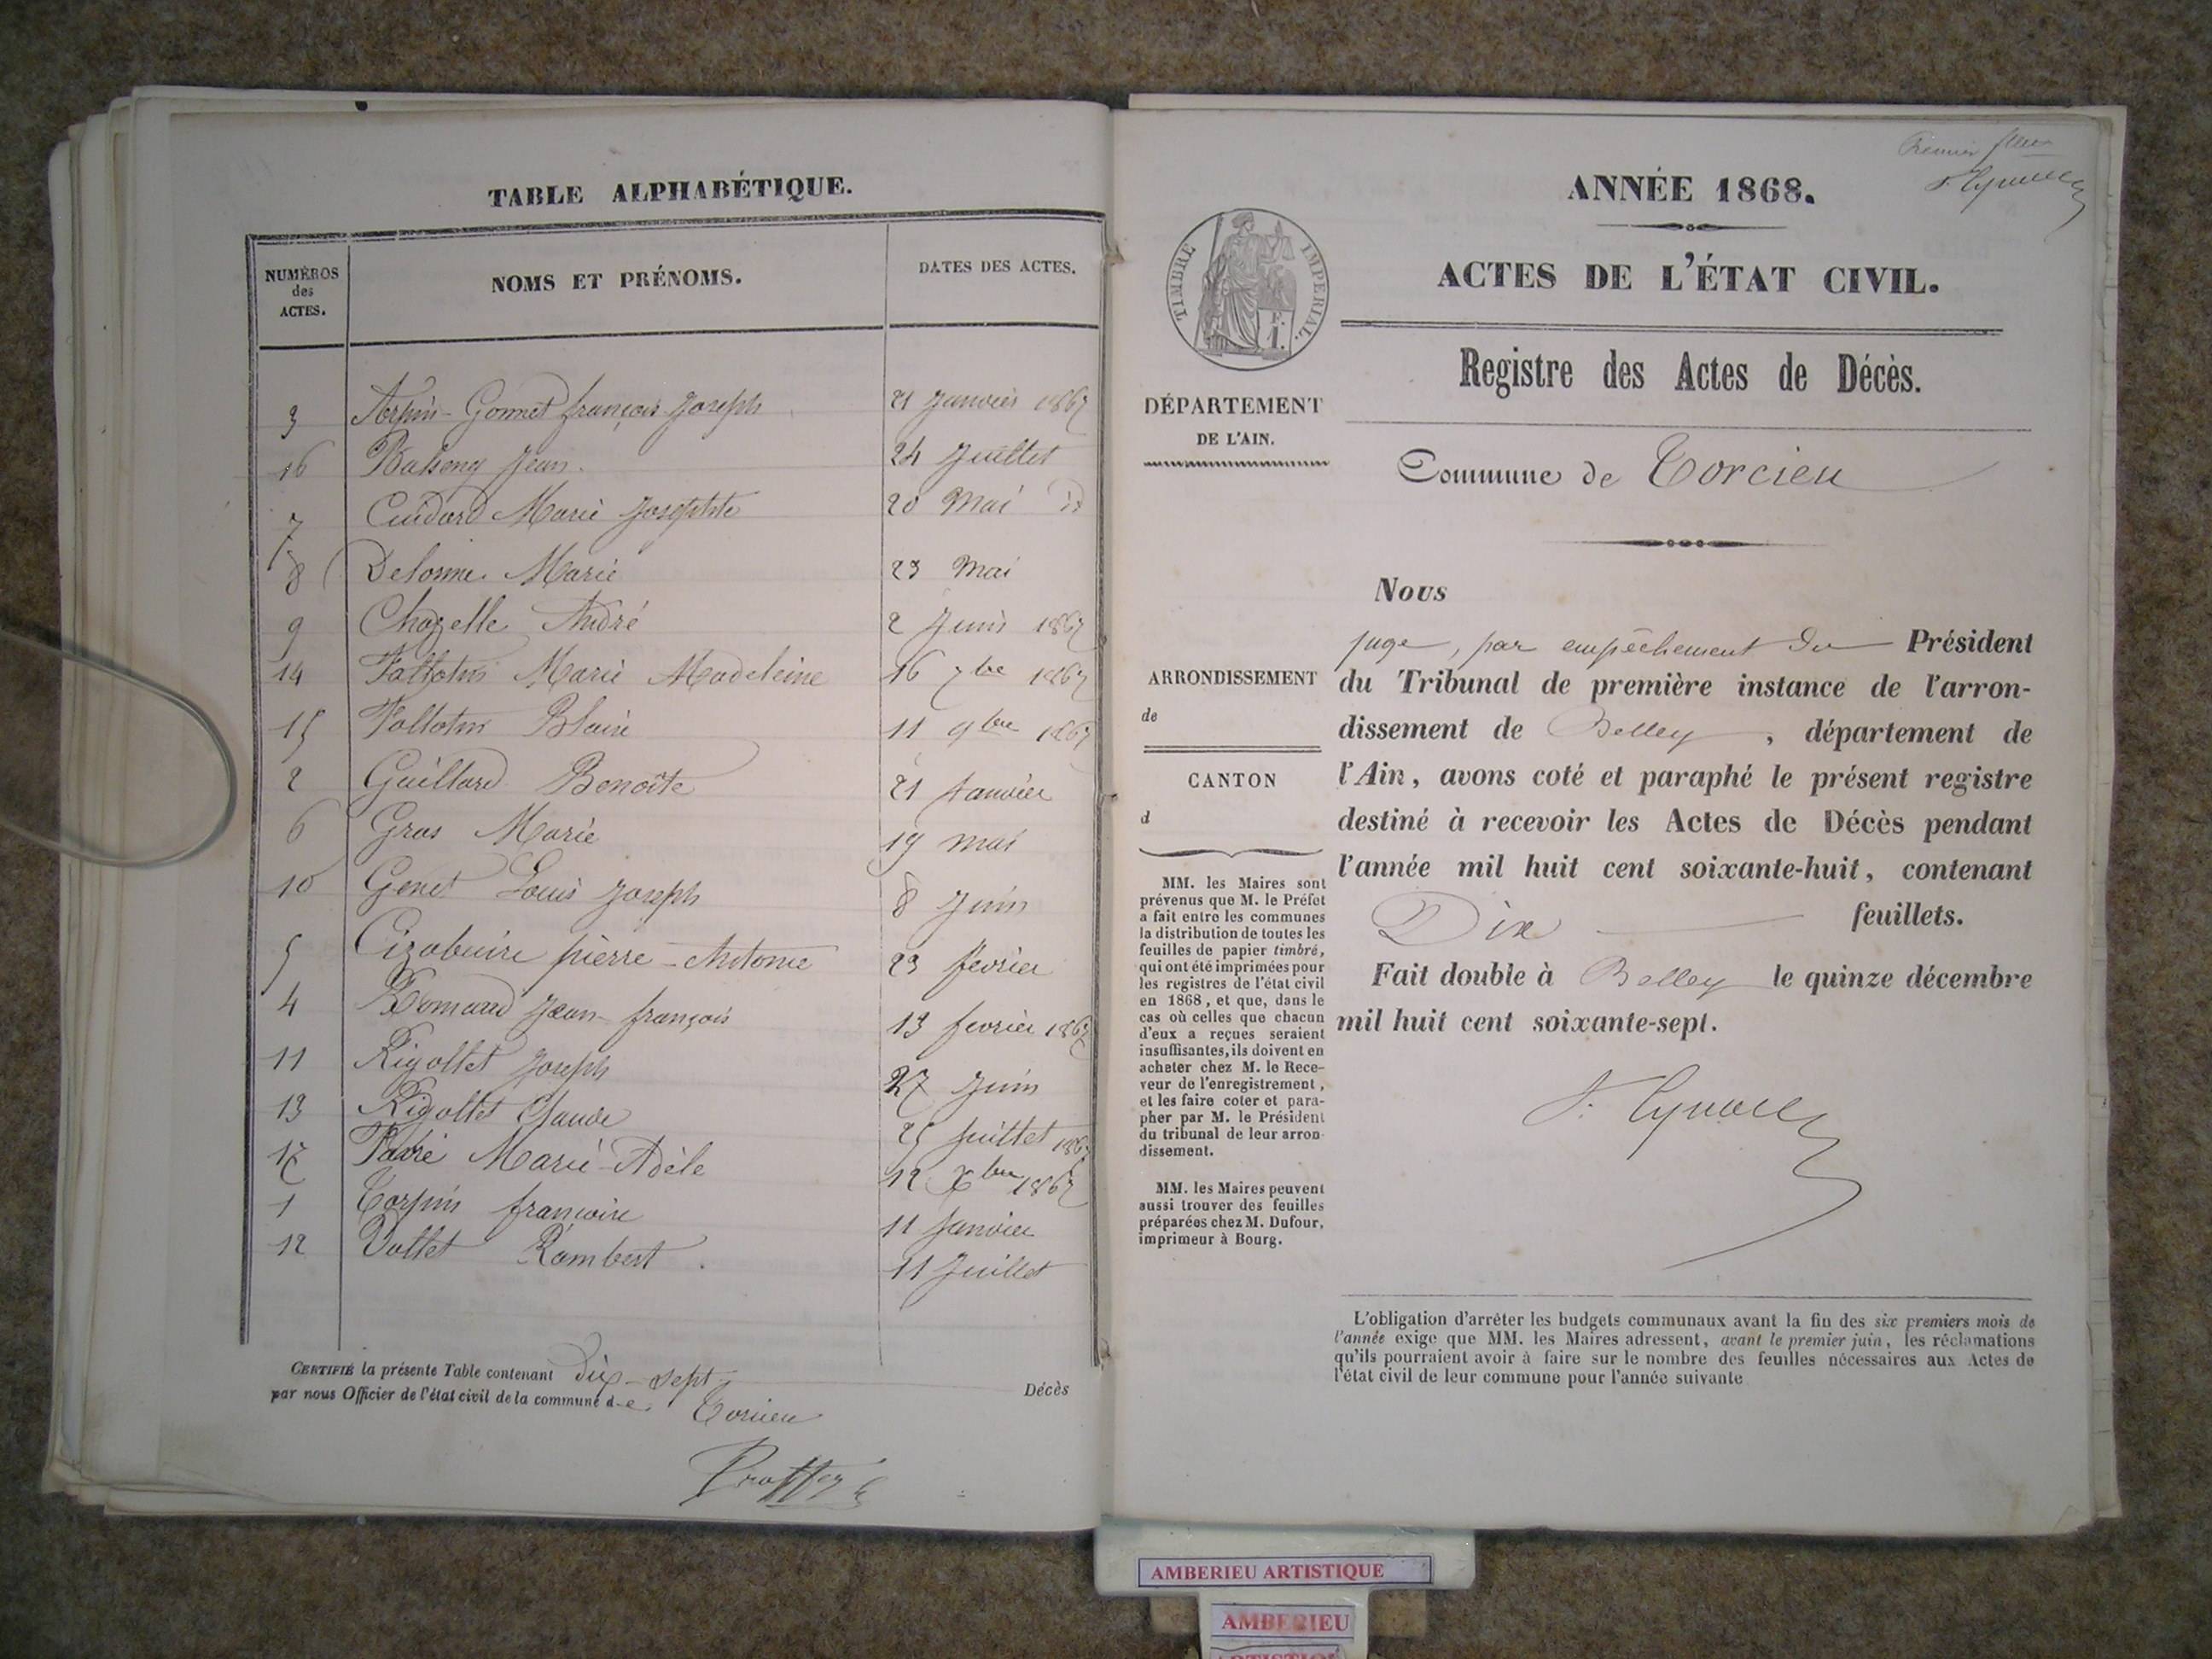 TABLE ALPHABÉTIQUE.
NUMÉROS des ACTES.
NOMS ET PRÉNOMS.
DATES DES ACTES.
3 Arpin-Gonnet françois Joseph 21 Janvier 1867
16 Jean. 24 Juillet
7 Cuidard Marie Josephte 20 Mai id
8 Delorme Marie 23 Mai
9 Chazelle André 2 Juin 1867
14 Marie Madeleine 16 7bre 1867
15 11 9bre 1867
2 Guillard Benoîte 21 Janvier
6 Gras Marie 19 mai
10 Genet Louis Joseph 8 Juin
5 pierre-Antoine 23 fevrier
4 Jean-françois 13 fevrier 1867
11 Rigollet Joseph 27 Juin
13 Rigollet Claude 25 Juillet 1867
17 Marie-Adèle 12 Xbre 1867
1 Torpin francoise 11 Janvier
12 Vollet Rambert. 11 Juillet
CERTIFIÉ la présente Table contenant dix-sept Décès
par nous Officier de l'état civil de la commune de Torcieu
Premier
ANNÉE 1868.
ACTES DE L'ÉTAT CIVIL.
TIMBRE IMPÉRIAL.
Registre des Actes de Décès.
DÉPARTEMENT
DE L'AIN.
Commune de Torcieu
ARRONDISSEMENT
de
CANTON
d
MM. les Maires sont
prévenus que M. le Préfet
a fait entre les communes
la distribution de toutes les
feuilles de papier timbré,
qui ont été imprimées pour
les registres de l'état civil
en 1868, et que, dans le
cas où celles que chacun
d'eux a reçues seraient
insuffisantes, ils doivent en
acheter chez M. le Rece-
veur de l'enregistrement,
et les faire coter et para-
pher par M. le Président
du tribunal de leur arron-
dissement.
MM. les Maires peuvent
aussi trouver des feuilles
préparées chez M. Dufour,
imprimeur à Bourg.
Nous
juge, par empêchement du Président
du Tribunal de première instance de l'arron-
dissement de Belley, département de
l'Ain, avons coté et paraphé le présent registre
destiné à recevoir les Actes de Décès pendant
l'année mil huit cent soixante-huit, contenant
Dix feuillets.
Fait double à Belley le quinze décembre
mil huit cent soixante-sept.
L'obligation d'arrêter les budgets communaux avant la fin des six premiers mois de
l'année exige que MM. les Maires adressent, avant le premier juin, les réclamations
qu'ils pourraient avoir à faire sur le nombre des feuilles nécessaires aux Actes de
l'état civil de leur commune pour l'année suivante
AMBERIEU ARTISTIQUE
AMBERIEU
ARTISTIQUE